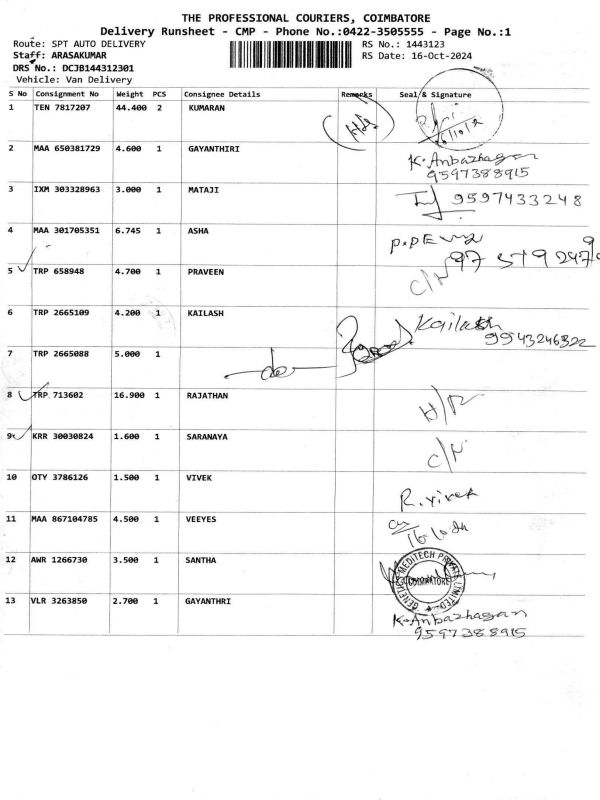 THE PROFESSIONAL COURIERS, COIMBATORE
Delivery Runsheet - CMP - Phone No.:0422-3505555 - Page No.:1
Route: SPT AUTO DELIVERY RS No.: 1443123
Staff: ARASAKUMAR RS Date: 16-Oct-2024
DRS No.: DCJB144312301
Vehicle: Van Delivery
S No Consignment No Weight PCS Consignee Details Remarks Seal & Signature
1 TEN 7817207 44.400 2 KUMARAN
2 MAA 650381729 4.600 1 GAYANTHIRI K.Anbazhagan
9597388915
3 IXM 303328963 3.000 1 MATAJI 9597433248
4 MAA 301705351 6.745 1 ASHA
5 TRP 658948 4.700 1 PRAVEEN C/N
6 TRP 2665109 4.200 1 KAILASH Kailash
9943246322
7 TRP 2665088 5.000 1
8 TRP 713602 16.900 1 RAJATHAN
9 KRR 30030824 1.600 1 SARANAYA C/N
10 OTY 3786126 1.500 1 VIVEK R.vivek
11 MAA 867104785 4.500 1 VEEYES
12 AWR 1266730 3.500 1 SANTHA MEDITECH PRIVATE LIMITED
COIMBATORE
13 VLR 3263850 2.700 1 GAYANTHRI K.Anbazhagan
9597388915